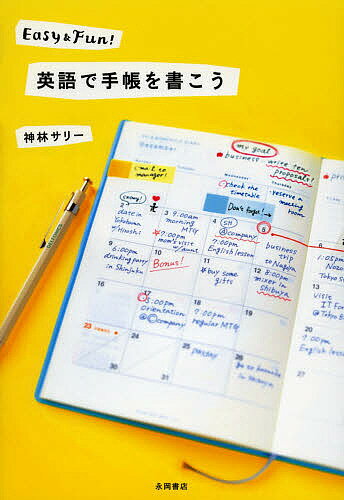 Easy & Fun!
英語で手帳を書こう
神林サリー
December
my goal
business
write ten
proposals!
mail to
manager!
check the
timetable
reserve a
meeting
room
Don't forget!→
(snowy!)
2
date in
Yokohama
w/Hiroshi
3 9:00am
morning
MTG
7:00pm
mom's visit
w/aunt
4
@company
7:00pm
English lesson
5
business
trip
to
Nagoya
6
1:05pm
Nozo
Tokyo
9
6:00pm
drinking party
in Shinjuku
10
Bonus!
11
buy some
gifts
12
8:00pm
mixer in
shibuya
13
visit
IT
Tokyo
16
17
5:00pm
Orientation
@company
18
7:00pm
regular MTG
19
20
7:00pm
English
23
24
25
payday
26
go to
in
27
30
31
永岡書店